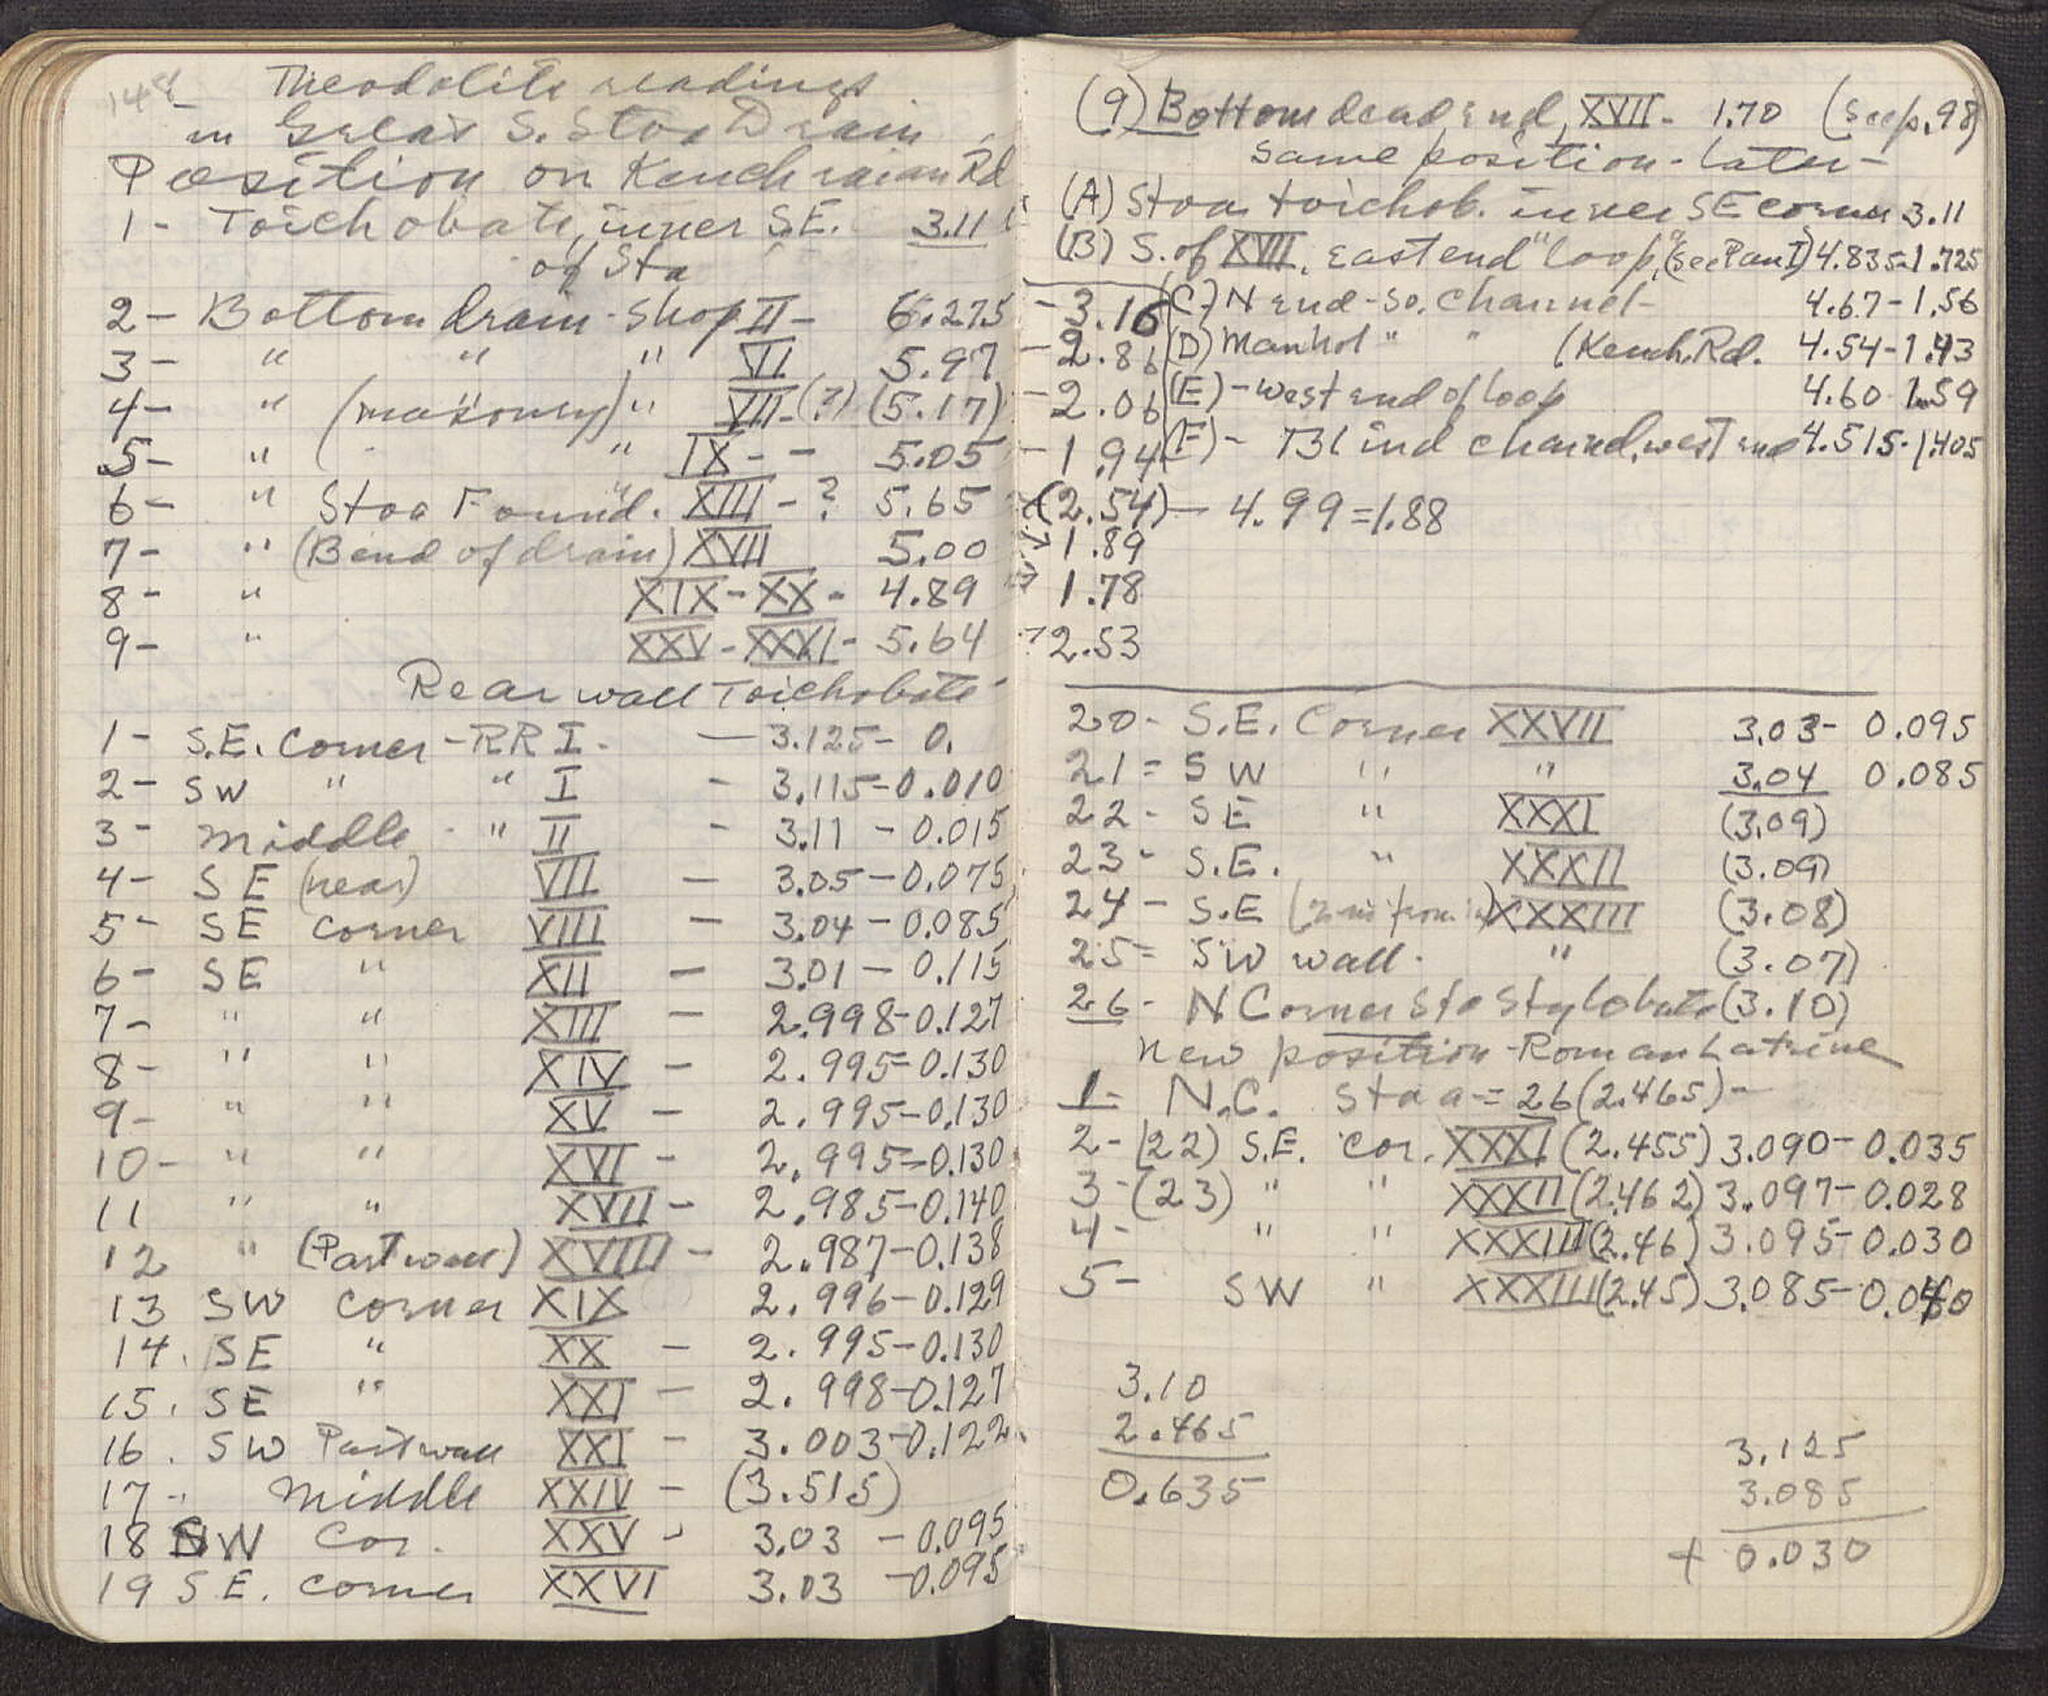 148
Theodolite readings
in Great S. Stoa Drain
Position on Kenchraian Rd
1- Toichobate, inner S.E. 3.11
of Sta
2- Bottom drain - Shop II - 6.275
3- " " " VII 5.97
4- " (masonry) " VII - (?) (5.17)
5- " " IX - - 5.05
6- " Stoa Found. XIII - ? 5.65
7- " (Bend of drain) XVII 5.00
8- " XIX - XX - 4.89
9- " XXV - XXXI - 5.64
Rear wall Toichobate
1- S.E. Corner - RR I. - 3.125 - 0.
2- SW " " I - 3.115 - 0.010
3- Middle " II - 3.11 - 0.015
4- SE (near) VII - 3.05 - 0.075
5- SE Corner VIII - 3.04 - 0.085
6- SE " XII - 3.01 - 0.115
7- " " XIII - 2.998 - 0.127
8- " " XIV - 2.995 - 0.130
9- " " XV - 2.995 - 0.130
10- " " XVI - 2.995 - 0.130
11 " " XVII - 2.985 - 0.140
12 " (Part wall) XVIII - 2.987 - 0.138
13 SW Corner XIX 2.996 - 0.129
14. SE " XX - 2.995 - 0.130
15. SE " XXI - 2.998 - 0.127
16. SW Part wall XXI - 3.003 - 0.122
17- Middle XXIV - (3.515)
18 SW Cor. XXV - 3.03 - 0.095
19 S.E. Corner XXVI 3.03 - 0.095
(9) Bottom dead end, XVII - 1.70 (see p. 98)
Same position - later -
(A) Stoa toichob. inner SE corner 3.11
(B) S. of XVII, east end "loop" (see Plan I) 4.835 - 1.725
- 3.16 (C) N end - so. Channel - 4.67 - 1.56
- 2.86 (D) Manhol " " (Kench. Rd. 4.54 - 1.43
- 2.06 (E) - west end of loop 4.60 - 1.59
- 1.94 (F) - Blind channel, west end 4.515 - 1.405
(2.54) - 4.99 = 1.88
1.89
1.78
2.53
20- S.E. Corner XXVII 3.03 - 0.095
21= SW " " 3.04 0.085
22- SE " XXXI (3.09)
23- S.E. " XXXII (3.09)
24- S.E XXXIII (3.08)
25= SW wall. " (3.07)
26- N Corner Sta Stylobate (3.10)
New position - Roman Latrine
1- N.C. Stoa = 26 (2.465) -
2- (22) S.E. Cor. XXXI (2.455) 3.090 - 0.035
3- (23) " " XXXII (2.462) 3.097 - 0.028
4- " " XXXIII (2.46) 3.095 - 0.030
5- SW " XXXIII (2.45) 3.085 - 0.040
3.10
2.465
0.635
3.125
3.085
+ 0.030